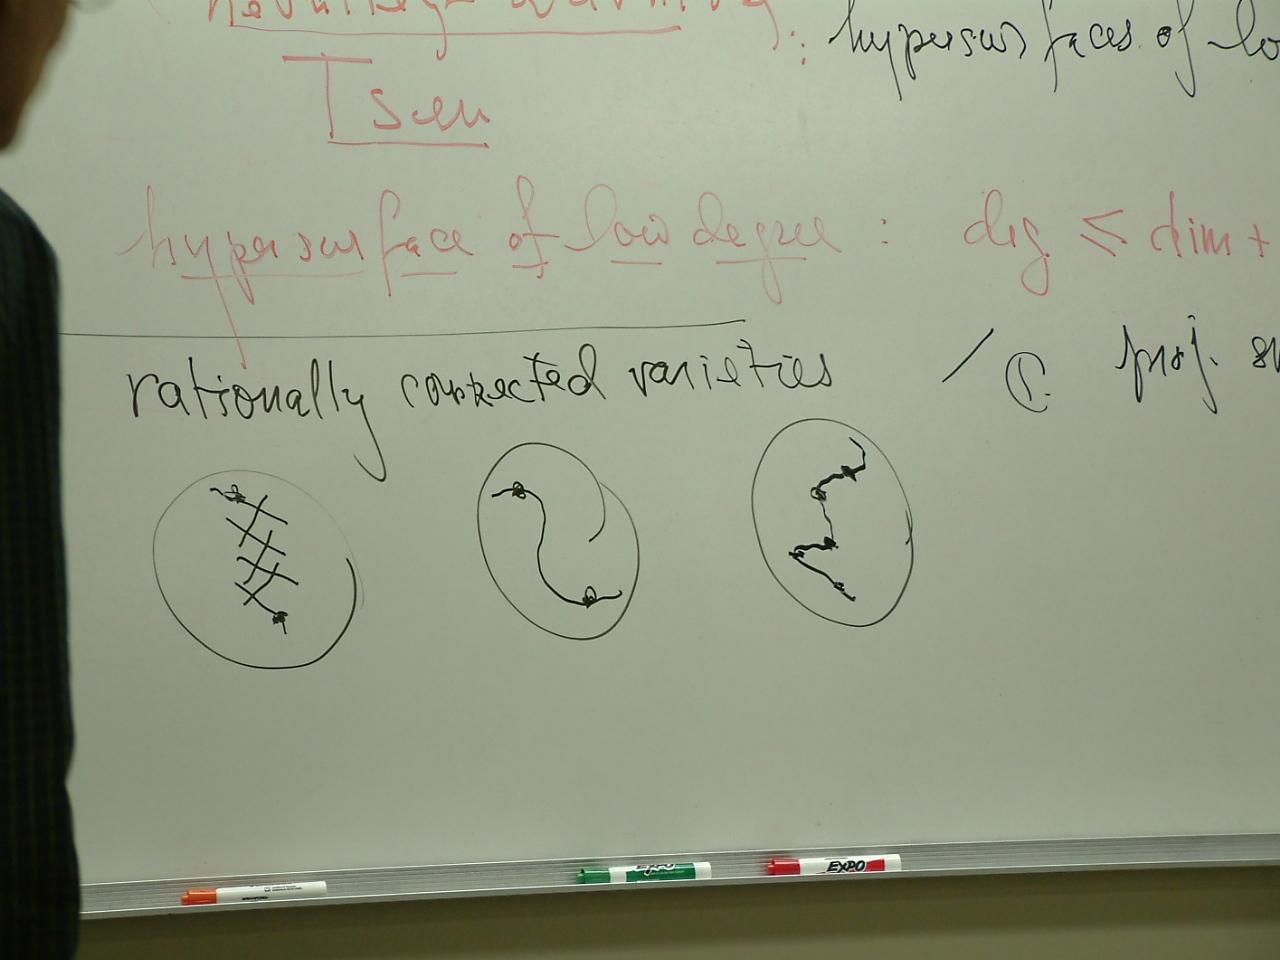 hypersurfaces of lo
Tsen
hypersurface of low degree : deg ≤ dim +
rationally connected varieties / C. proj. sm
EXPO EXPO